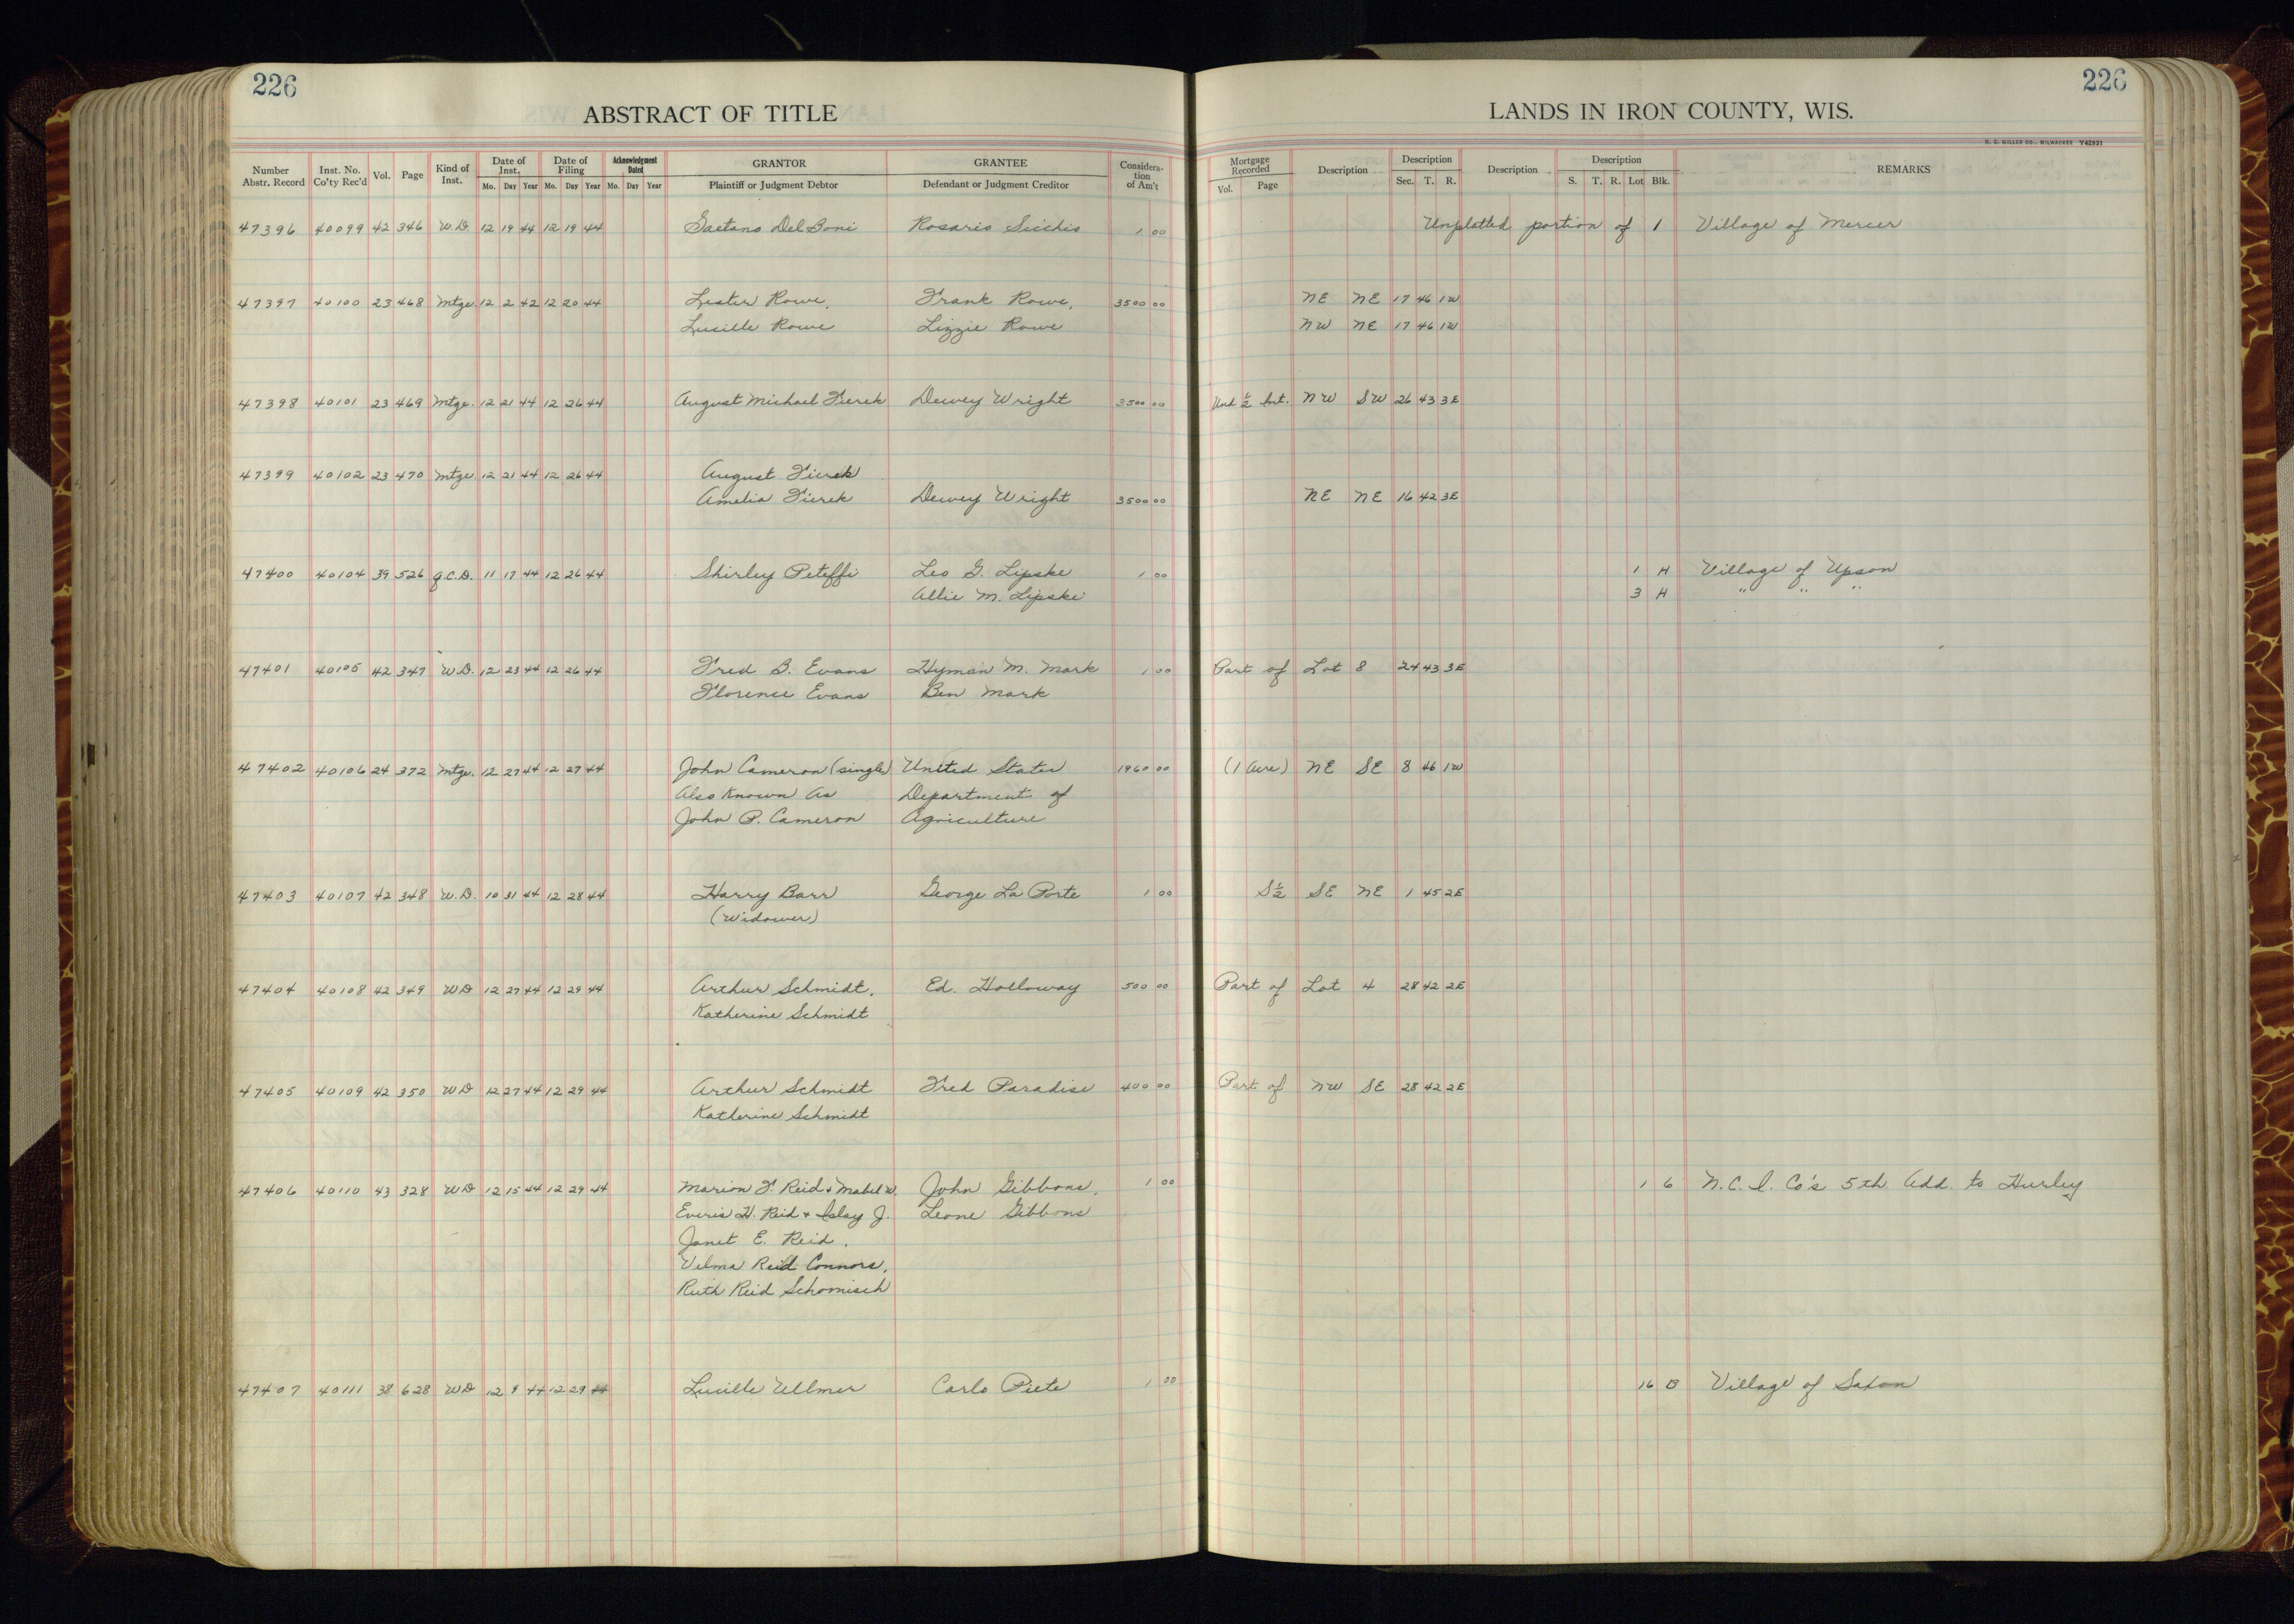 226
226
ABSTRACT OF TITLE
LANDS IN IRON COUNTY, WIS.
H. C. MILLER CO., MILWAUKEE Y42931
Number Abstr. Record Inst. No. Co'ty Rec'd Vol. Page Kind of Inst. Date of Inst. Mo. Day Year Date of Filing Mo. Day Year Acknowledgment Dated Mo. Day Year GRANTOR Plaintiff or Judgment Debtor GRANTEE Defendant or Judgment Creditor Considera-tion of Am't Mortgage Recorded Vol. Page Description Description Sec. T. R. Description Description S. T. R. Lot Blk. REMARKS
47396 40099 42 346 W.D. 12 19 44 12 19 44 Gaetano DelBoni Rosario Sicchio 1 00 Unplatted portion of 1 Village of Mercer
47397 40100 23 468 Mtge 12 2 42 12 20 44 Lester Rowe, Frank Rowe, 3500 00 NE NE 17 46 1W
Lucille Rowe Lizzie Rowe NW NE 17 46 1W
47398 40101 23 469 Mtge. 12 21 44 12 26 44 August Michael Fierek Dewey Wright 3500 00 Und ½ Int. NW SW 26 43 3E
47399 40102 23 470 Mtge 12 21 44 12 26 44 August Fierek
Amelia Fierek Dewey Wright 3500 00 NE NE 16 42 3E
47400 40104 39 526 Q.C.D. 11 17 44 12 26 44 Shirley Peteffi Leo G. Lipske 1 00 1 H Village of Upson
Allie M. Lipske 3 H " " "
47401 40105 42 347 W.D. 12 23 44 12 26 44 Fred B. Evans Hyman M. Mark 1 00 Part of Lot 8 24 43 3E
Florence Evans Ben Mark
47402 40106 24 372 Mtge. 12 27 44 12 27 44 John Cameron (single) United States 1960 00 (1 Acre) NE SE 8 46 1W
Also Known As Department of
John P. Cameron Agriculture
47403 40107 42 348 W.D. 10 31 44 12 28 44 Harry Barr George La Porte 1 00 S½ SE NE 1 45 2E
(Widower)
47404 40108 42 349 WD 12 27 44 12 29 44 Arthur Schmidt, Ed. Holloway 500 00 Part of Lot 4 28 42 2E
Katherine Schmidt
47405 40109 42 350 WD 12 27 44 12 29 44 Arthur Schmidt Fred Paradise 400 00 Part of NW SE 28 42 2E
Katherine Schmidt
47406 40110 43 328 WD 12 15 44 12 29 44 Marion F. Reid + Mabel W. John Gibbons, 1 00 1 6 N.C.I. Co's 5th Add to Hurley
Everis H. Reid + Islay J. Leone Gibbons
Janet E. Reid,
Velma Reid Connors,
Ruth Reid Schomisch
47407 40111 38 628 WD 12 9 44 12 29 44 Lucille Ullmer Carlo Piete 1 00 16 B Village of Saxon